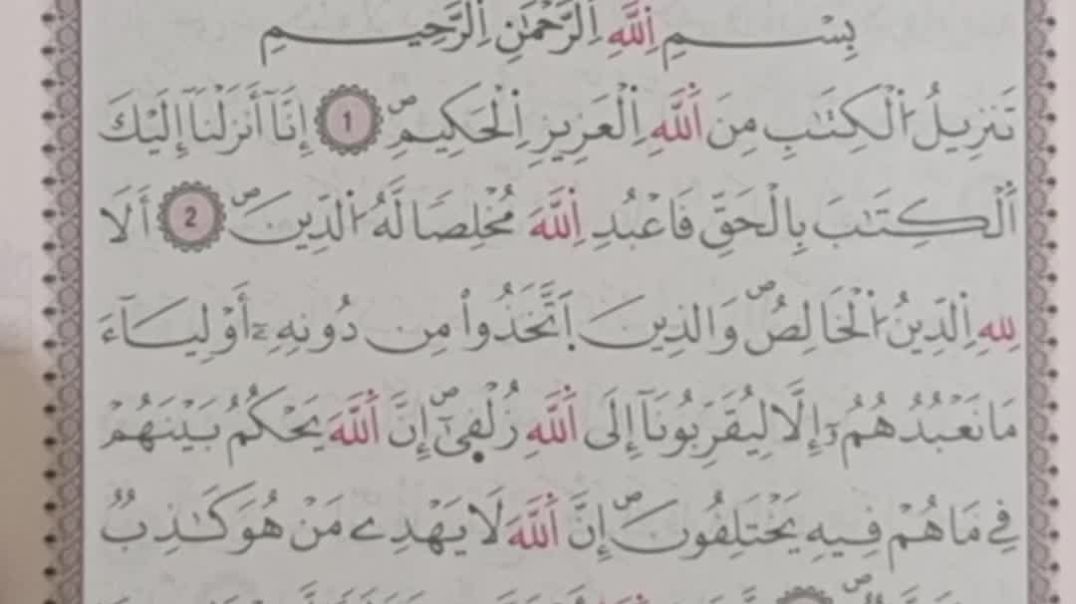 بِسْمِ اِ۬للَّهِ اِ۬لرَّحْمَٰنِ اِ۬لرَّحِيمِ
تَنزِيلُ اُ۬لْكِتَٰبِ مِنَ اَ۬للَّهِ اِ۬لْعَزِيزِ اِ۬لْحَكِيمِۖ 1 إِنَّآ أَنزَلْنَآ إِلَيْكَ
اَ۬لْكِتَٰبَ بِالْحَقِّ فَاعْبُدِ اِ۬للَّهَ مُخْلِصاٗ لَّهُ اُ۬لدِّينَۖ 2 أَلَا
لِلهِ اِ۬لدِّينُ اُ۬لْخَالِصُۖ وَالذِينَ اَ۪تَّخَذُواْ مِن دُونِهِۦٓ أَوْلِيَآءَ
مَا نَعْبُدُهُمُۥٓ إِلَّا لِيُقَرِّبُونَآ إِلَى اَ۬للَّهِ زُلْف۪ىٰٓۖ إِنَّ اَ۬للَّهَ يَحْكُمُ بَيْنَهُمْ
فِے مَا هُمْ فِيهِ يَخْتَلِفُونَۖ إِنَّ اَ۬للَّهَ لَا يَهْدِے مَنْ هُوَ كَٰذِبٞ